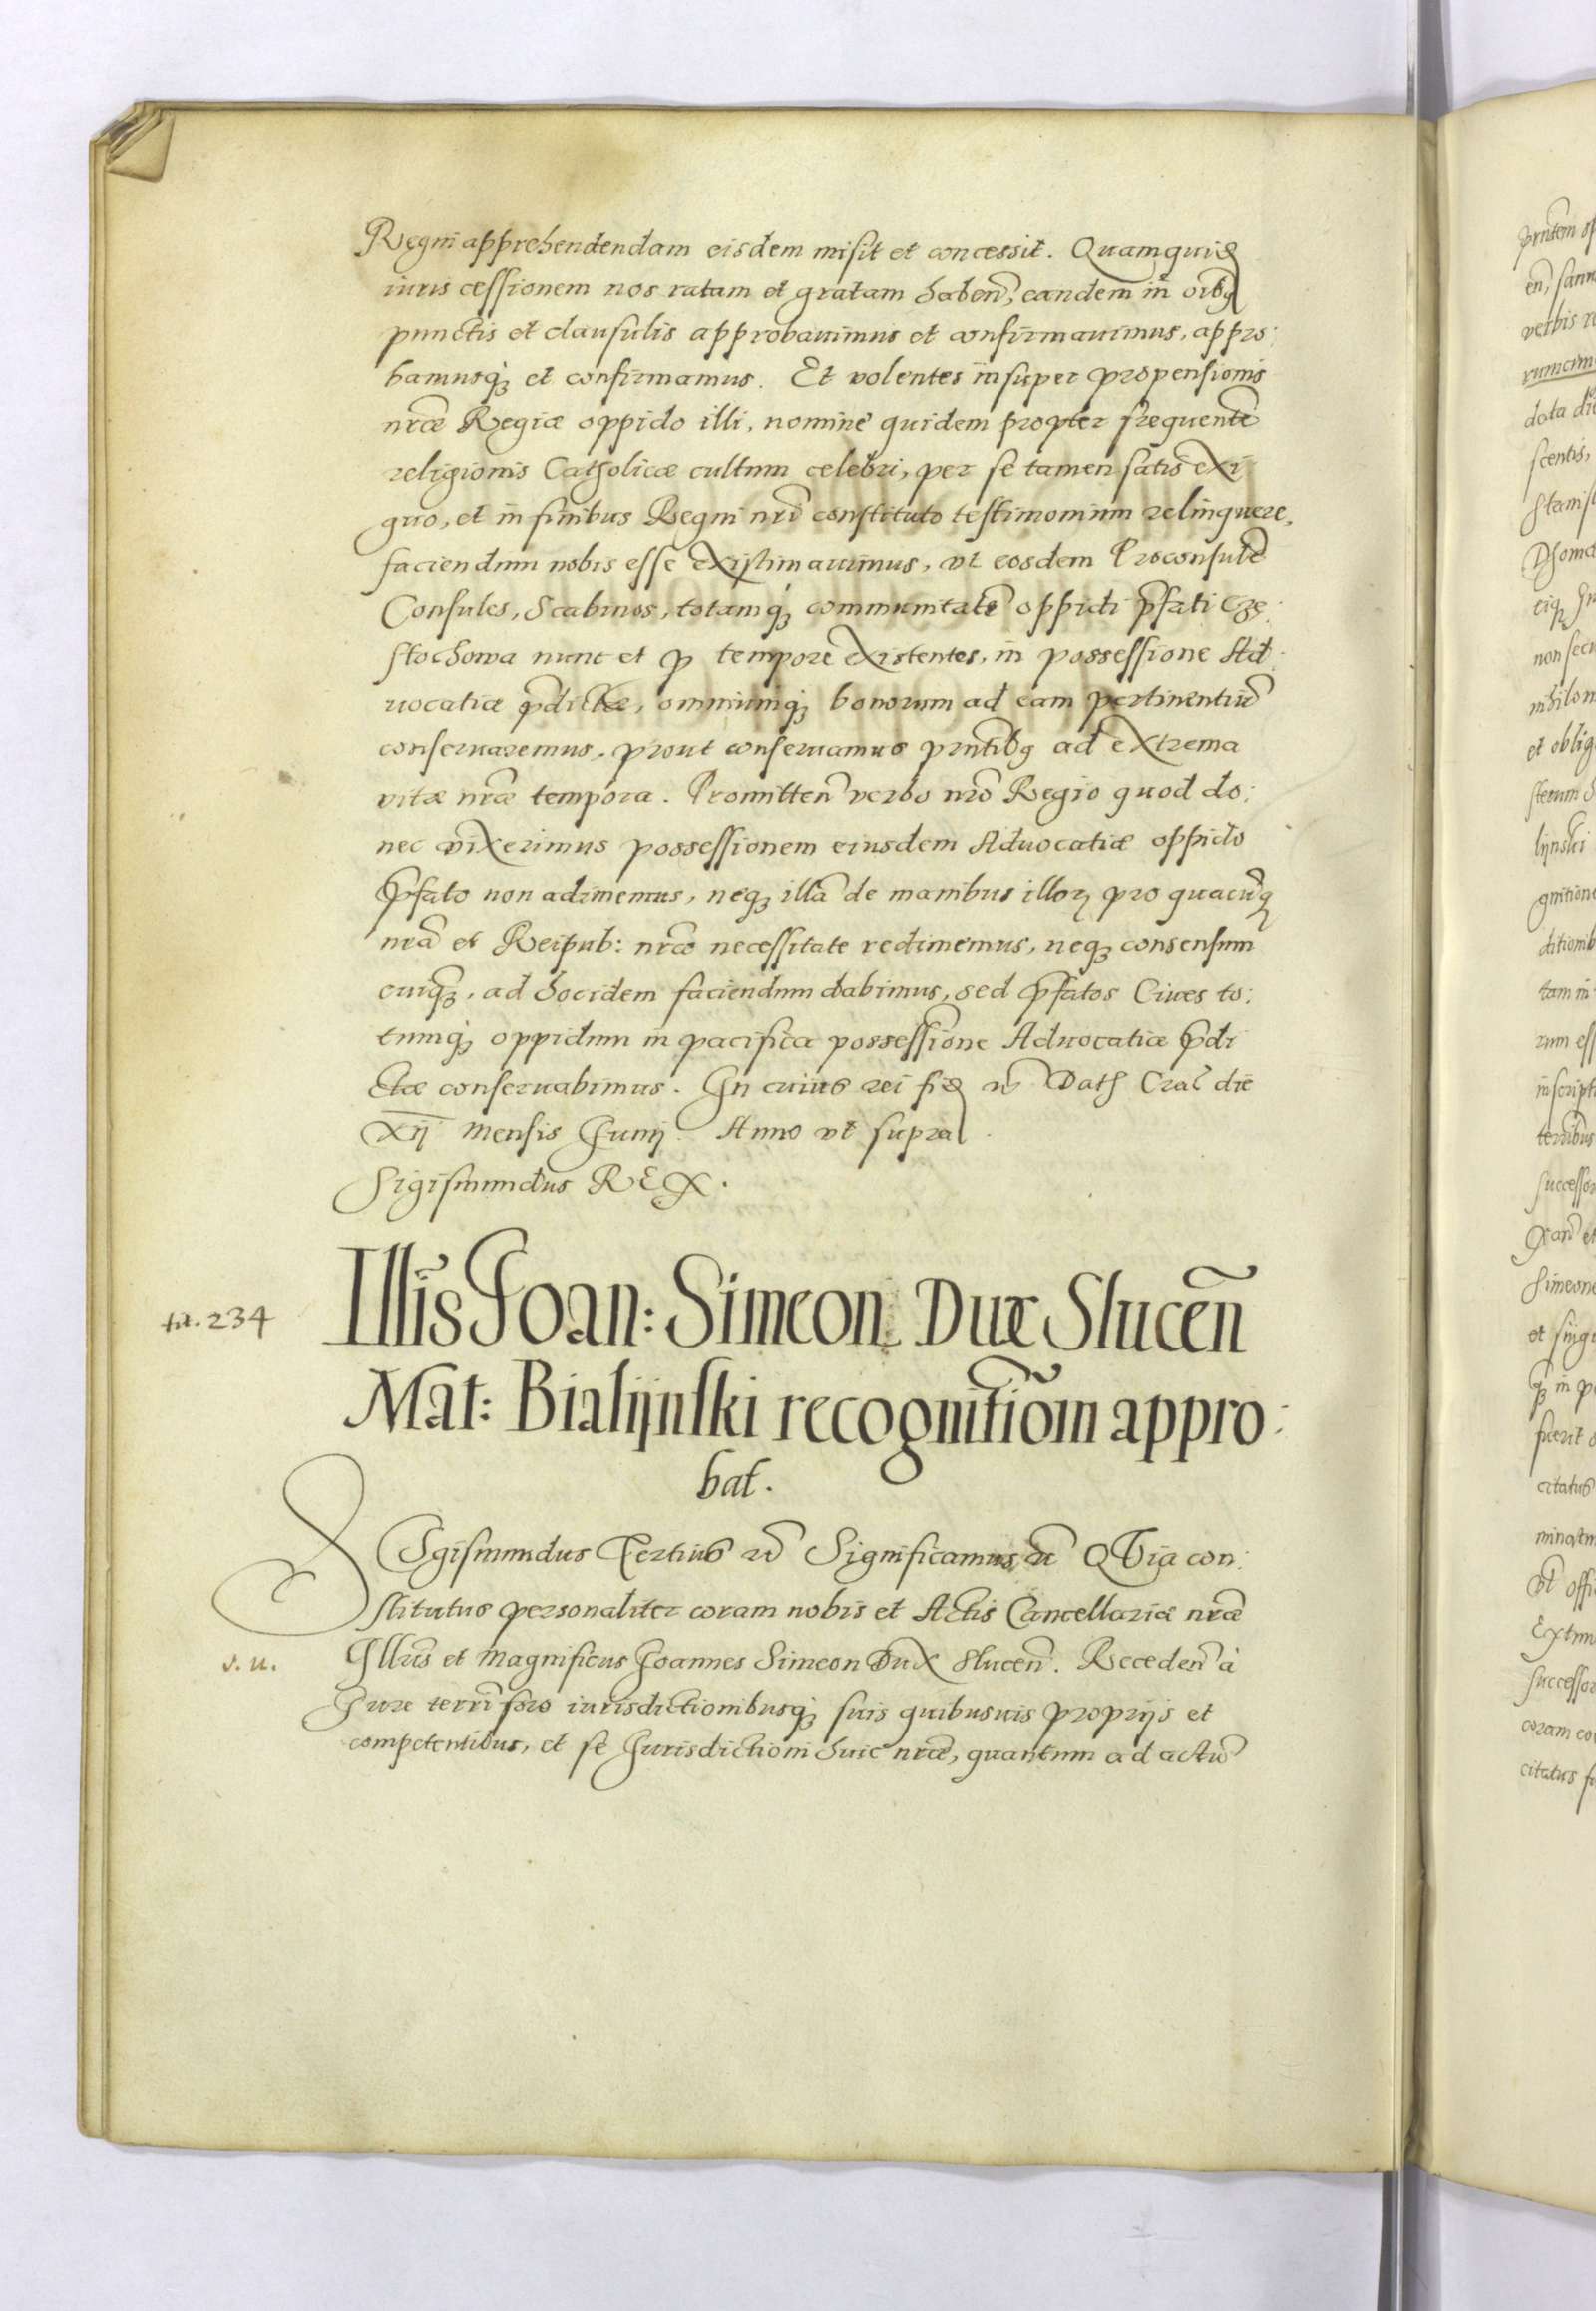 Regni apprehendendam eisdem misit et concessit. Quamquid
iuris cessionem nos ratam et gratam haben̄, eandem in oībꝫ
punctis et clausulis approbavimus et confirmavimus, appro:
bamusqꝫ et confirmamus. Et volentes insuper propensionis
nr̄æ Regiæ oppido illi, nomine quidem propter frequentē
religionis Catholicæ cultum celebri, per se tamen satis exi
guo, et in finibus Regni nr̄i constituto testimonium relinquere,
faciendum nobis esse existimavimus, vt eosdem Proconsulē
Consules, Scabinos, totamqꝫ communitatē oppidi p̄fati Czę:
stochowa nunc et ꝓ tempore existentes, in possessione Ad:
uocatiæ p̄dictæ, omniumqꝫ bonorum ad eam pertinentiū
conseruaremus, prout conseruamus pr̄ntibꝫ ad extrema
vitæ nr̄æ tempora. Promitten̄ verbo nr̄o Regio quod do:
nec vixerimus possessionem eiusdem Aduocatiæ oppido
p̄fato non adimemus, neqꝫ illā de manibus illoꝝ pro quacūqꝫ
nr̄a et Reipub: nr̄æ necessitate redimemus, neqꝫ consensum
cuiqꝫ, ad hoc idem faciendum dabimus, sed p̄fatos Ciues to:
tumqꝫ oppidum in pacifica possessione Aduocatiæ p̄di
ctæ conseruabimus. In cuius rei fid etc̄ Dat Crac̄ die
Xij mensis Junij. Anno vt supra.
Sigismundus REX.
Illr̄is Joan: Simeon Dux Slucen̄
Mat: Bialijnski recognitiōm appro:
bat.
ta. 234
Sgismundus Tertius etc̄ Significamus etc̄ QVia con:
stitutus personaliter coram nobis et Actis Cancellariæ nr̄æ
Illr̄is et Magnificus Joannes Simeon Dux Slucen̄. Receden̄ à
s. u.
Jure terr̄i foro iurisdictionibusqꝫ suis quibusuis proprijs et
competentibus, et se Jurisdictioni huic nr̄æ, quantum ad actū